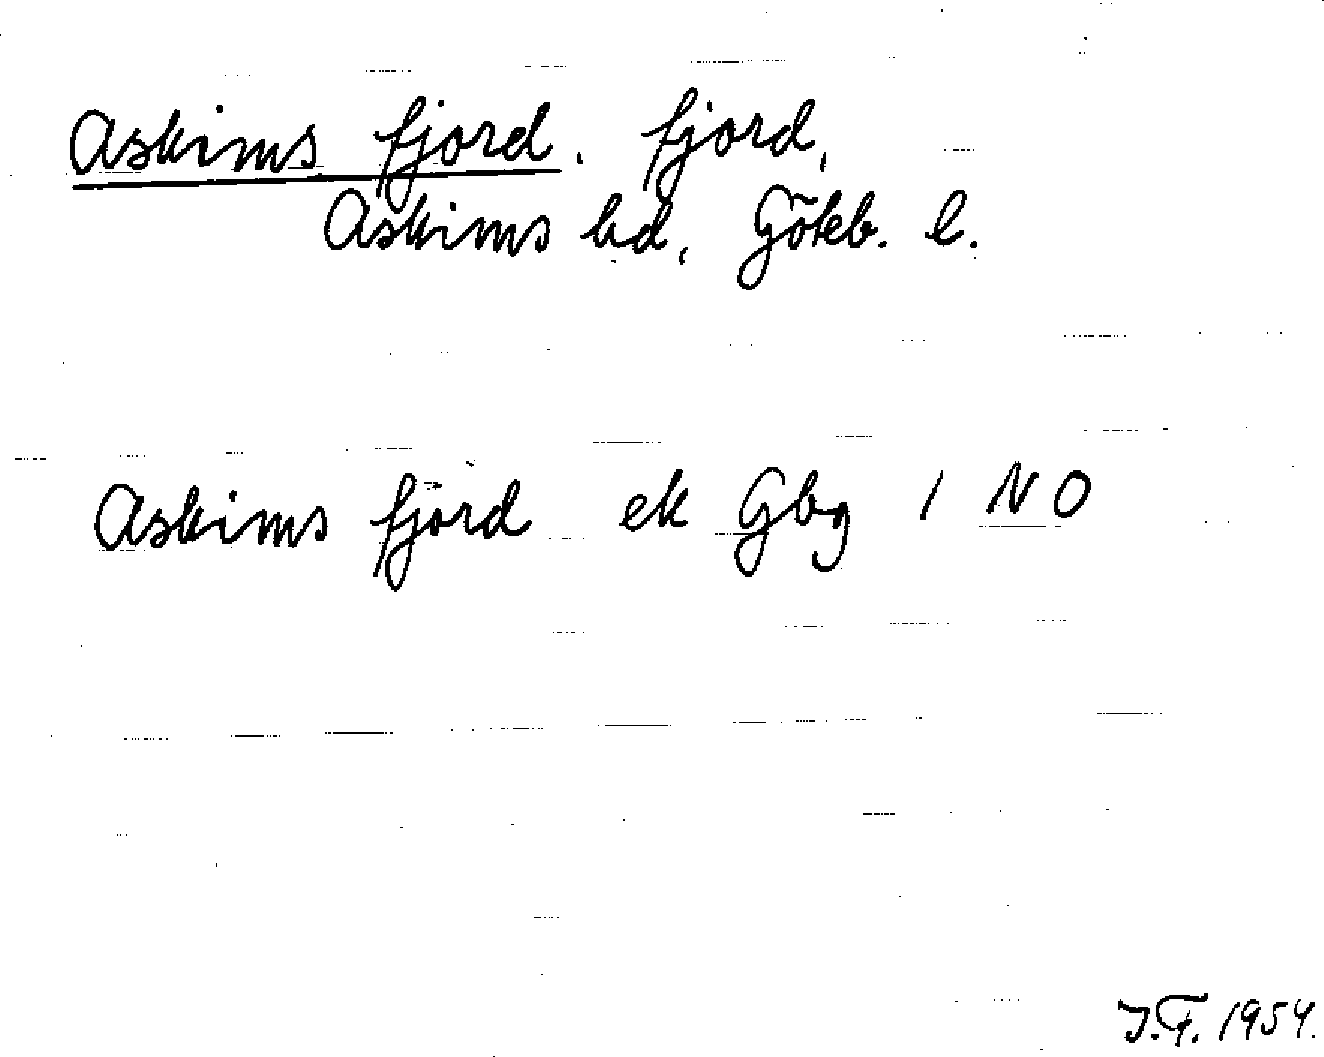 Askims fjord. fjord,
Askims hd, Göteb. l.
Askims fjord ek Gbg 1 NO
I.F. 1954.